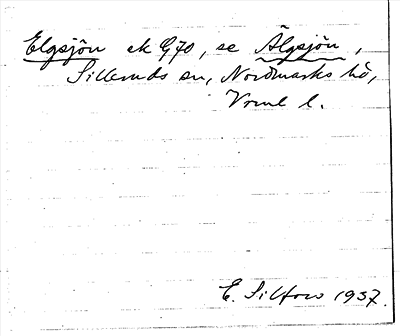 Elgsjön ek G70, se Älgsjön,
Silleruds sn, Nordmarks hd,
Vrml l.
E. Silfors 1937.